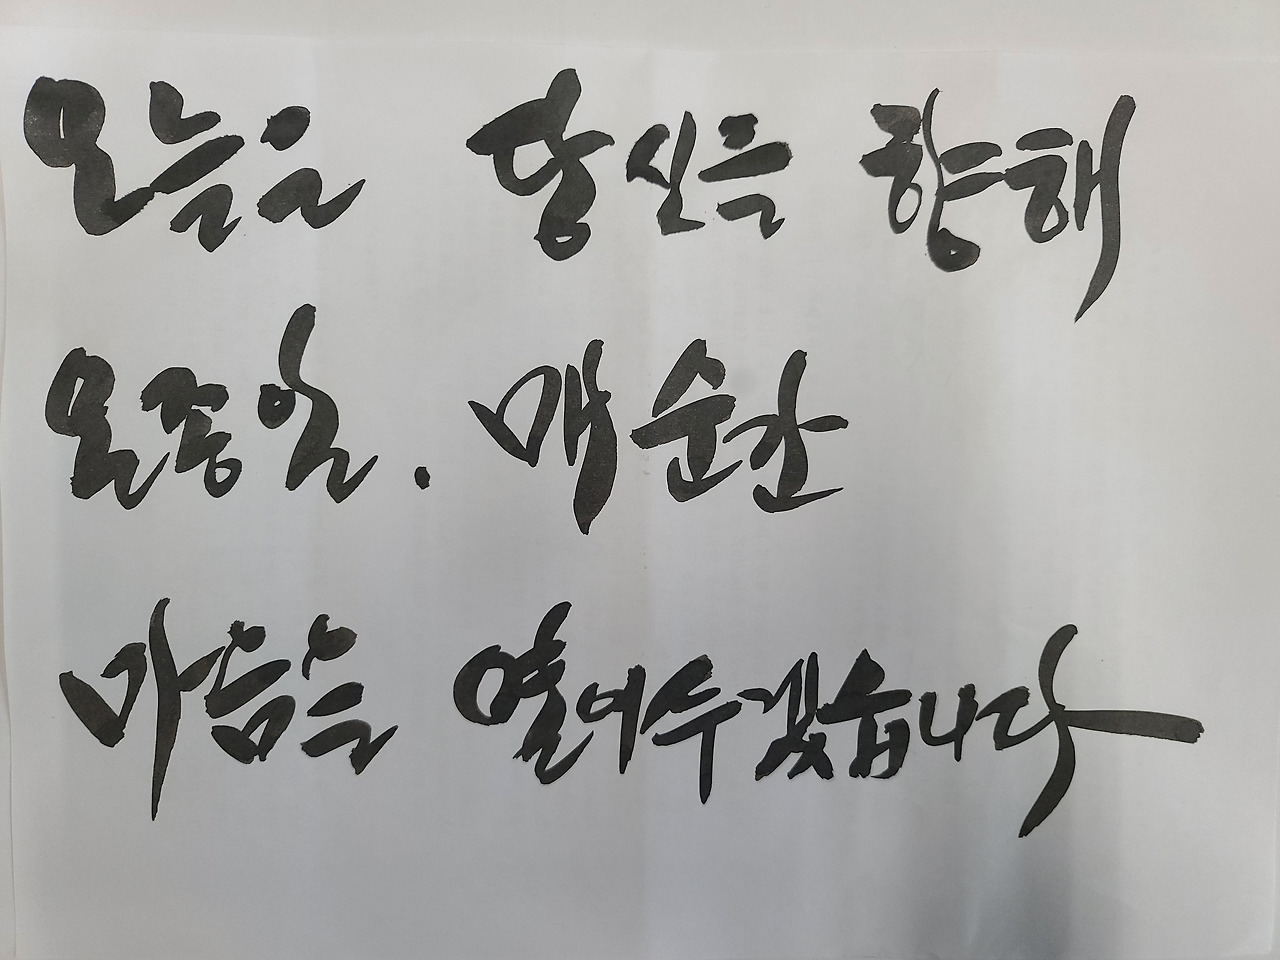 오늘은 당신을 향해
온종일. 매순간
마음을 열어두겠습니다